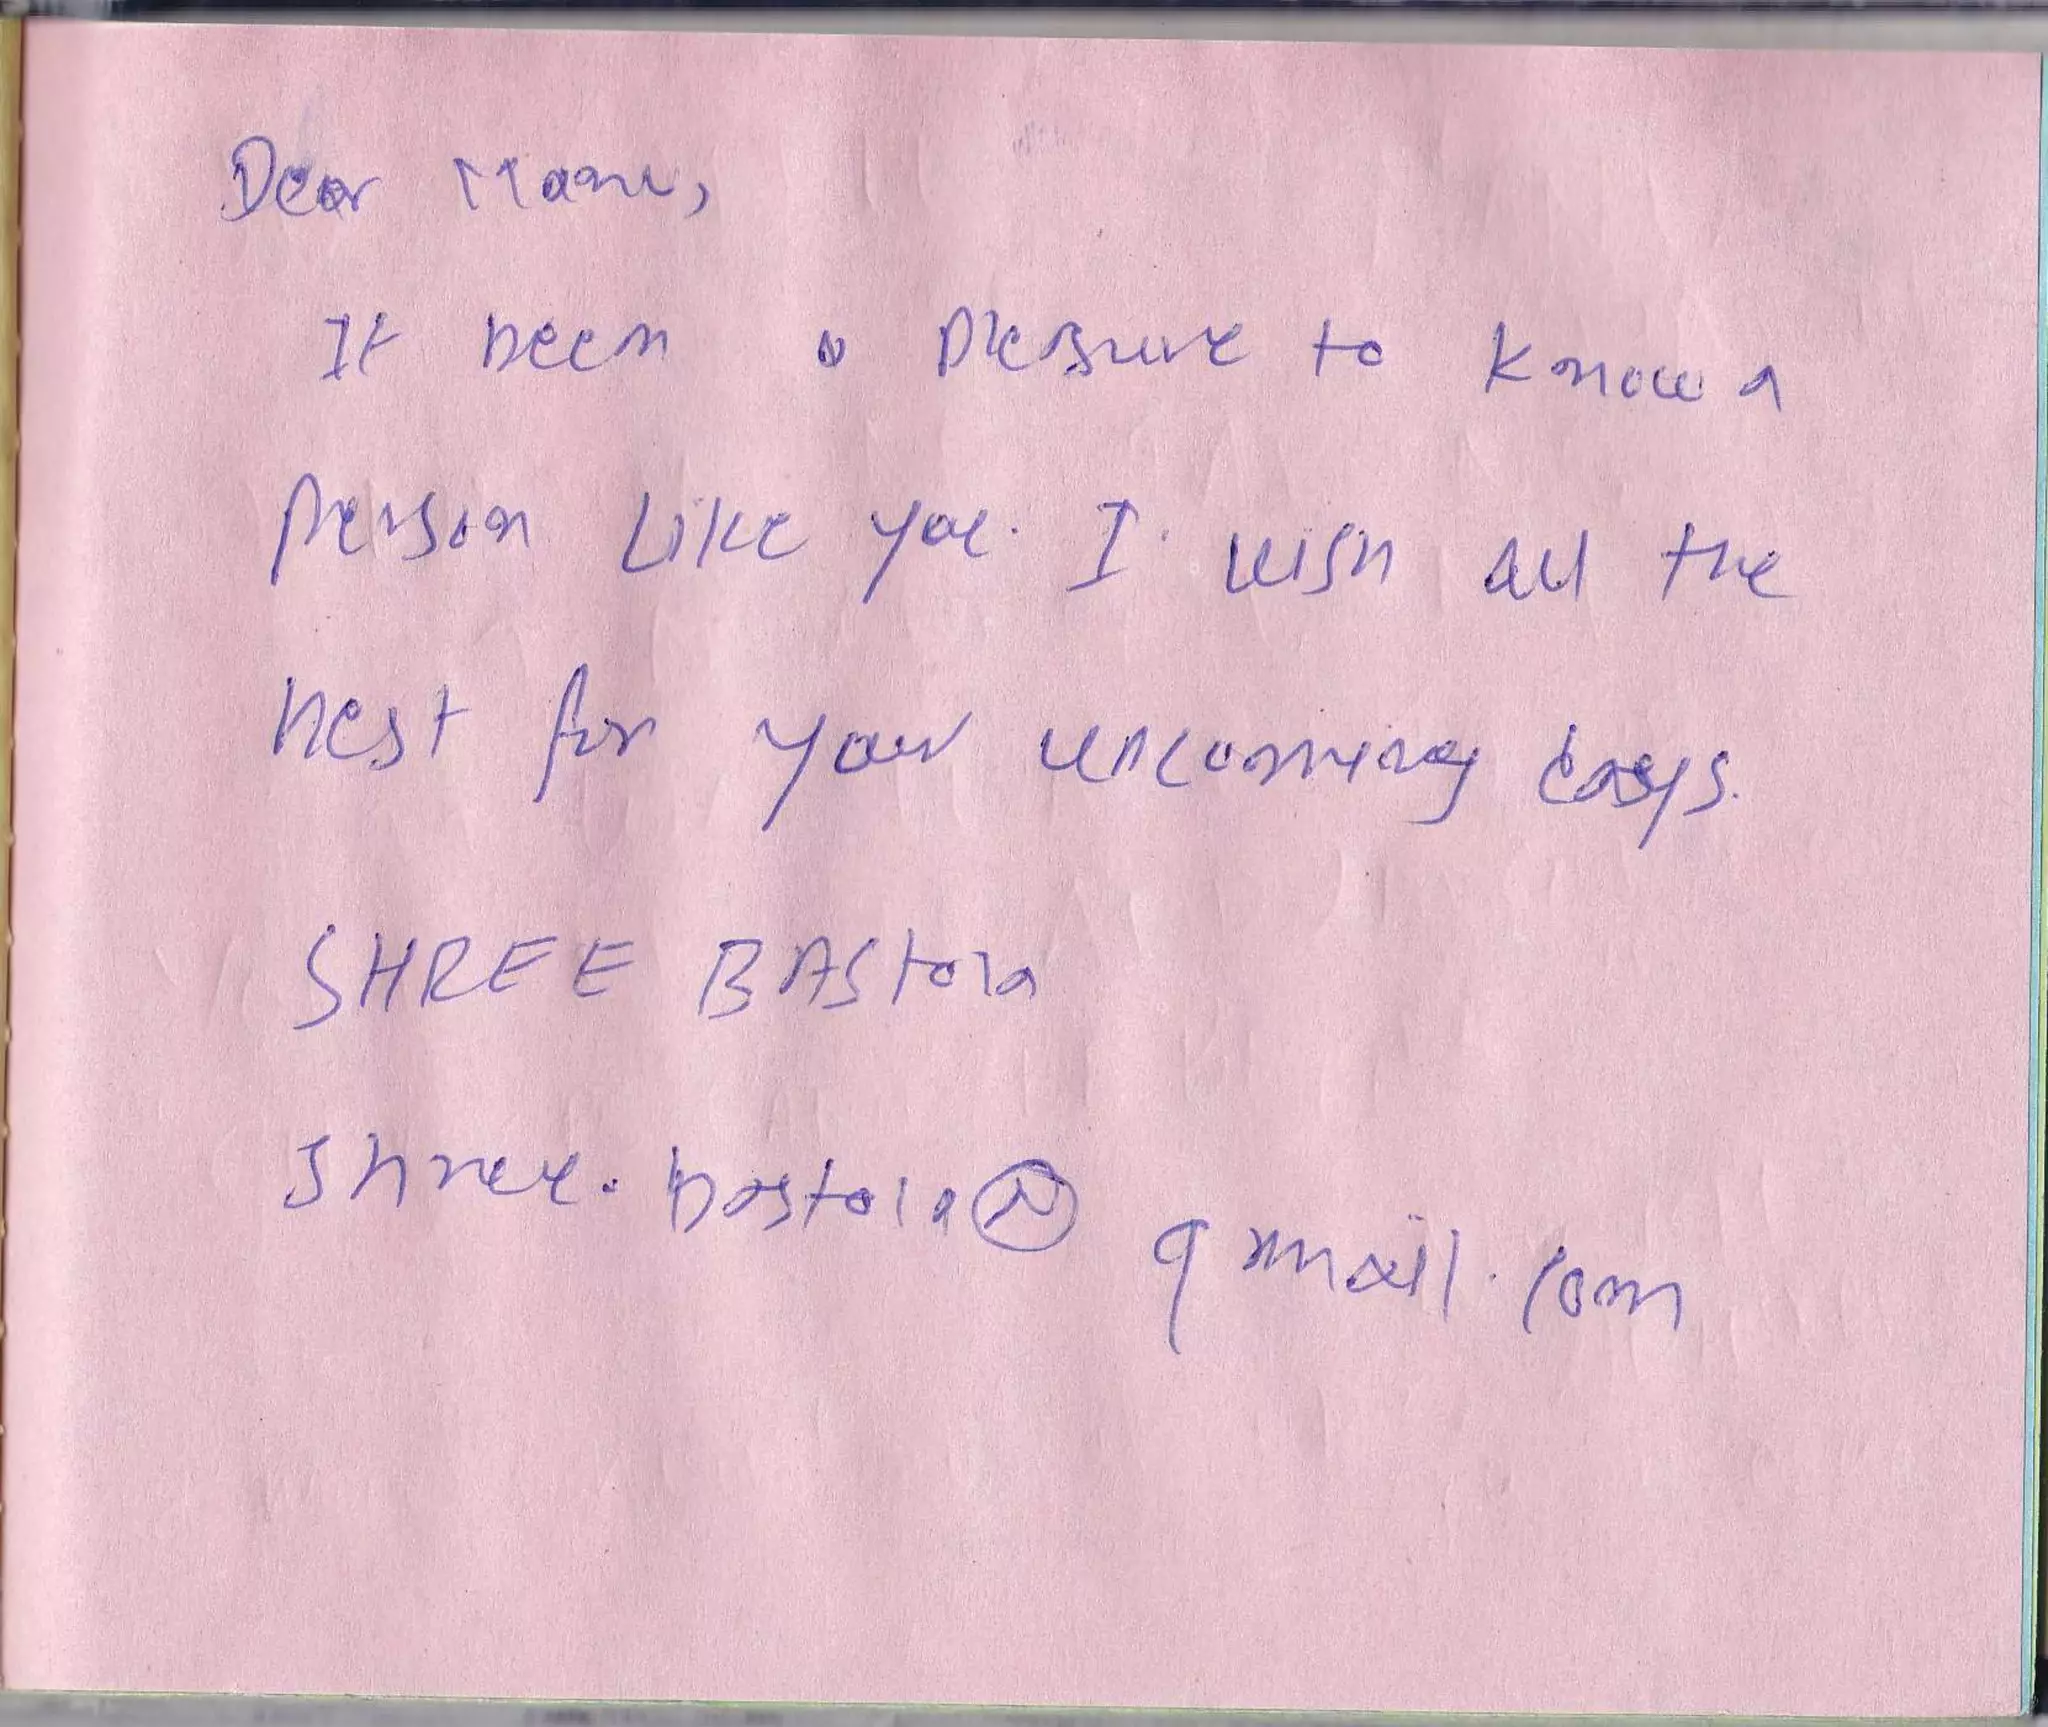 Dear Manu,
It been a pleasure to know a
person like you. I wish all the
best for your upcoming days.
SHREE BAStola
shree.bastola@gmail.com